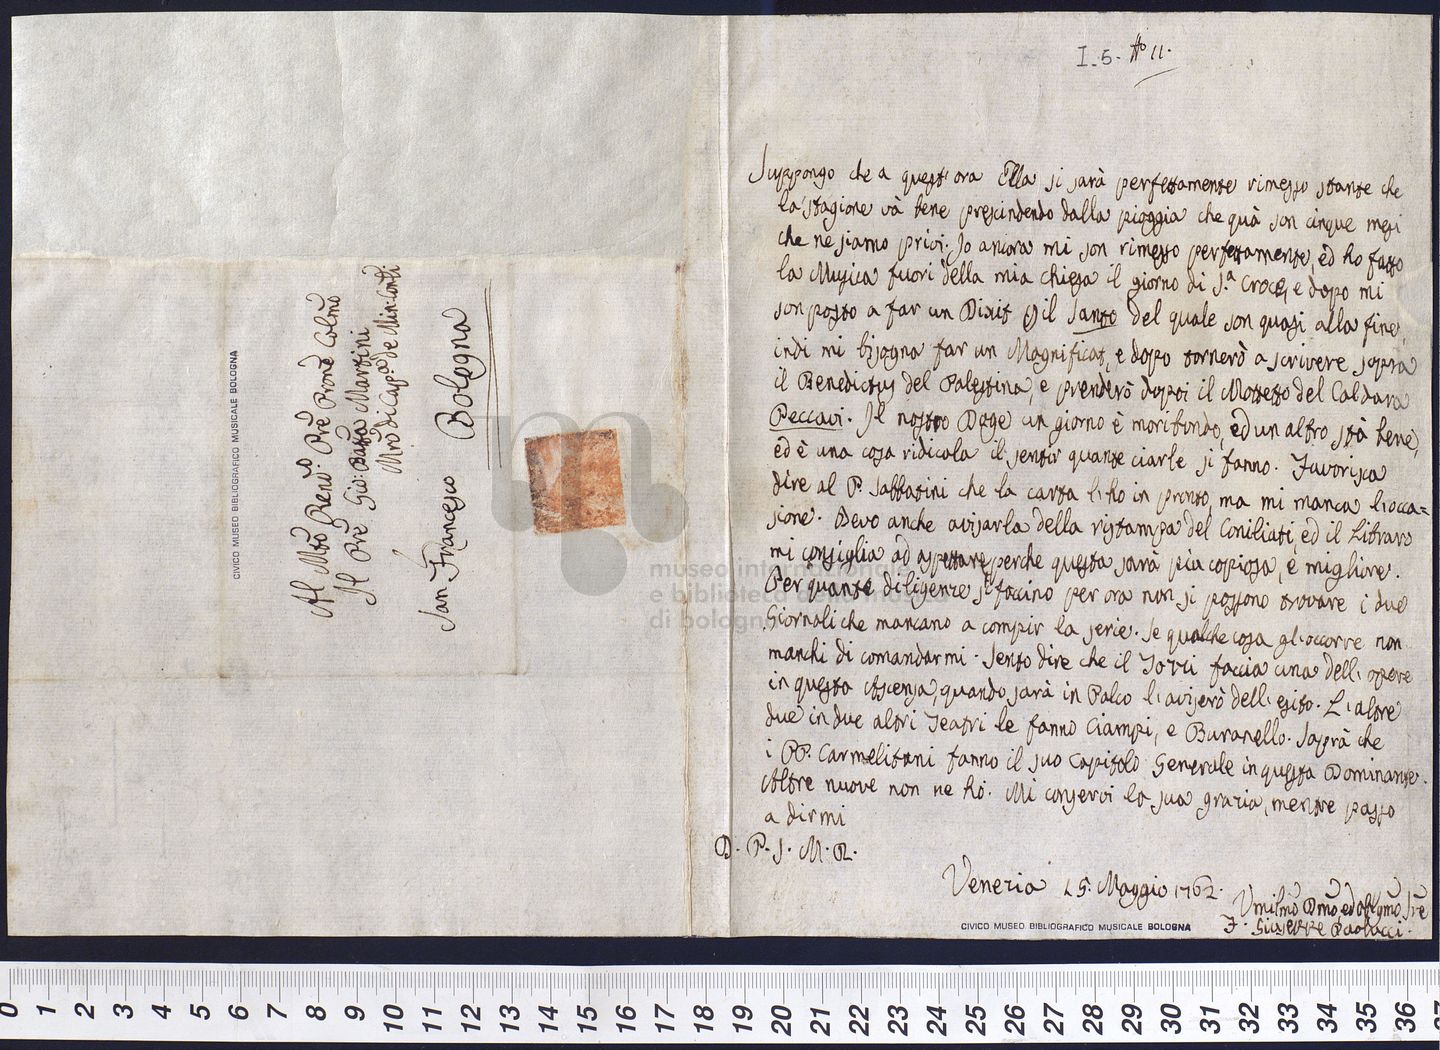 I. 5. No 11.
Suppongo che a quest'ora Ella si sarà perfettamente rimesso stante che
la stagione và bene prescindendo dalla pioggia che quà son cinque mesi
che ne siamo privi. Io ancora mi son rimesso perfettamente, ed ho fatto
la Musica fuori della mia chiesa il giorno di S.a Croce, e dopo mi
son posto a far un Dixit il santo del quale son quasi alla fine,
indi mi bisogna far un Magnificat, e dopo tornerò a scrivere sopra
il Benedictus del Palestina, e prenderò doppoi il Mottetto del Caldara
Peccavi. Il nostro Doge un giorno è moribondo, ed un altro stà bene,
ed è una cosa ridicola il sentir quante ciarle si fanno. Favorisca
dire al P. Sabbatini che la carta l'ho in pronto, ma mi manca l'occa=
sione. Devo anche avisarla della ristampa del Coniliati, ed il Libraro
mi consiglia ad aspettare perche questa sarà più copiosa, e migliore.
Per quante diligenze si faccino per ora non si possono trovare i due
Giornali che mancano a compir la serie. Se qualche cosa gl'occorre non
manchi di comandarmi. Sento dire che il faccia una dell'opere
in questa Ascensa, quando sarà in Palco l'aviserò dell'esito. L'altre
due in due altri Teatri le fanno Ciampi, e Buranello. Saprà che
i PP. Carmelitani fanno il suo Capitolo Generale in questa Dominante.
Altre nuove non ne hò. Mi conservi la sua grazia, mentre passo
a dirmi
D. P. S. M. R.
Venezia 15. Maggio 1762.
Umilmo Dmo, ed oblgmo Sre
F. Giuseppe Paolucci.
CIVICO MUSEO BIBLIOGRAFICO MUSICALE BOLOGNA
Al Mto Rendo Pre Prone Colmo
Il Pre Gio: Batta Martini
Mro di Cap.a de Min: Conli
San Francesco Bologna
CIVICO MUSEO BIBLIOGRAFICO MUSICALE BOLOGNA
museo internazionale
e biblioteca della musica
di bologna
0 1 2 3 4 5 6 7 8 9 10 11 12 13 14 15 16 17 18 19 20 21 22 23 24 25 26 27 28 29 30 31 32 33 34 35 36 37